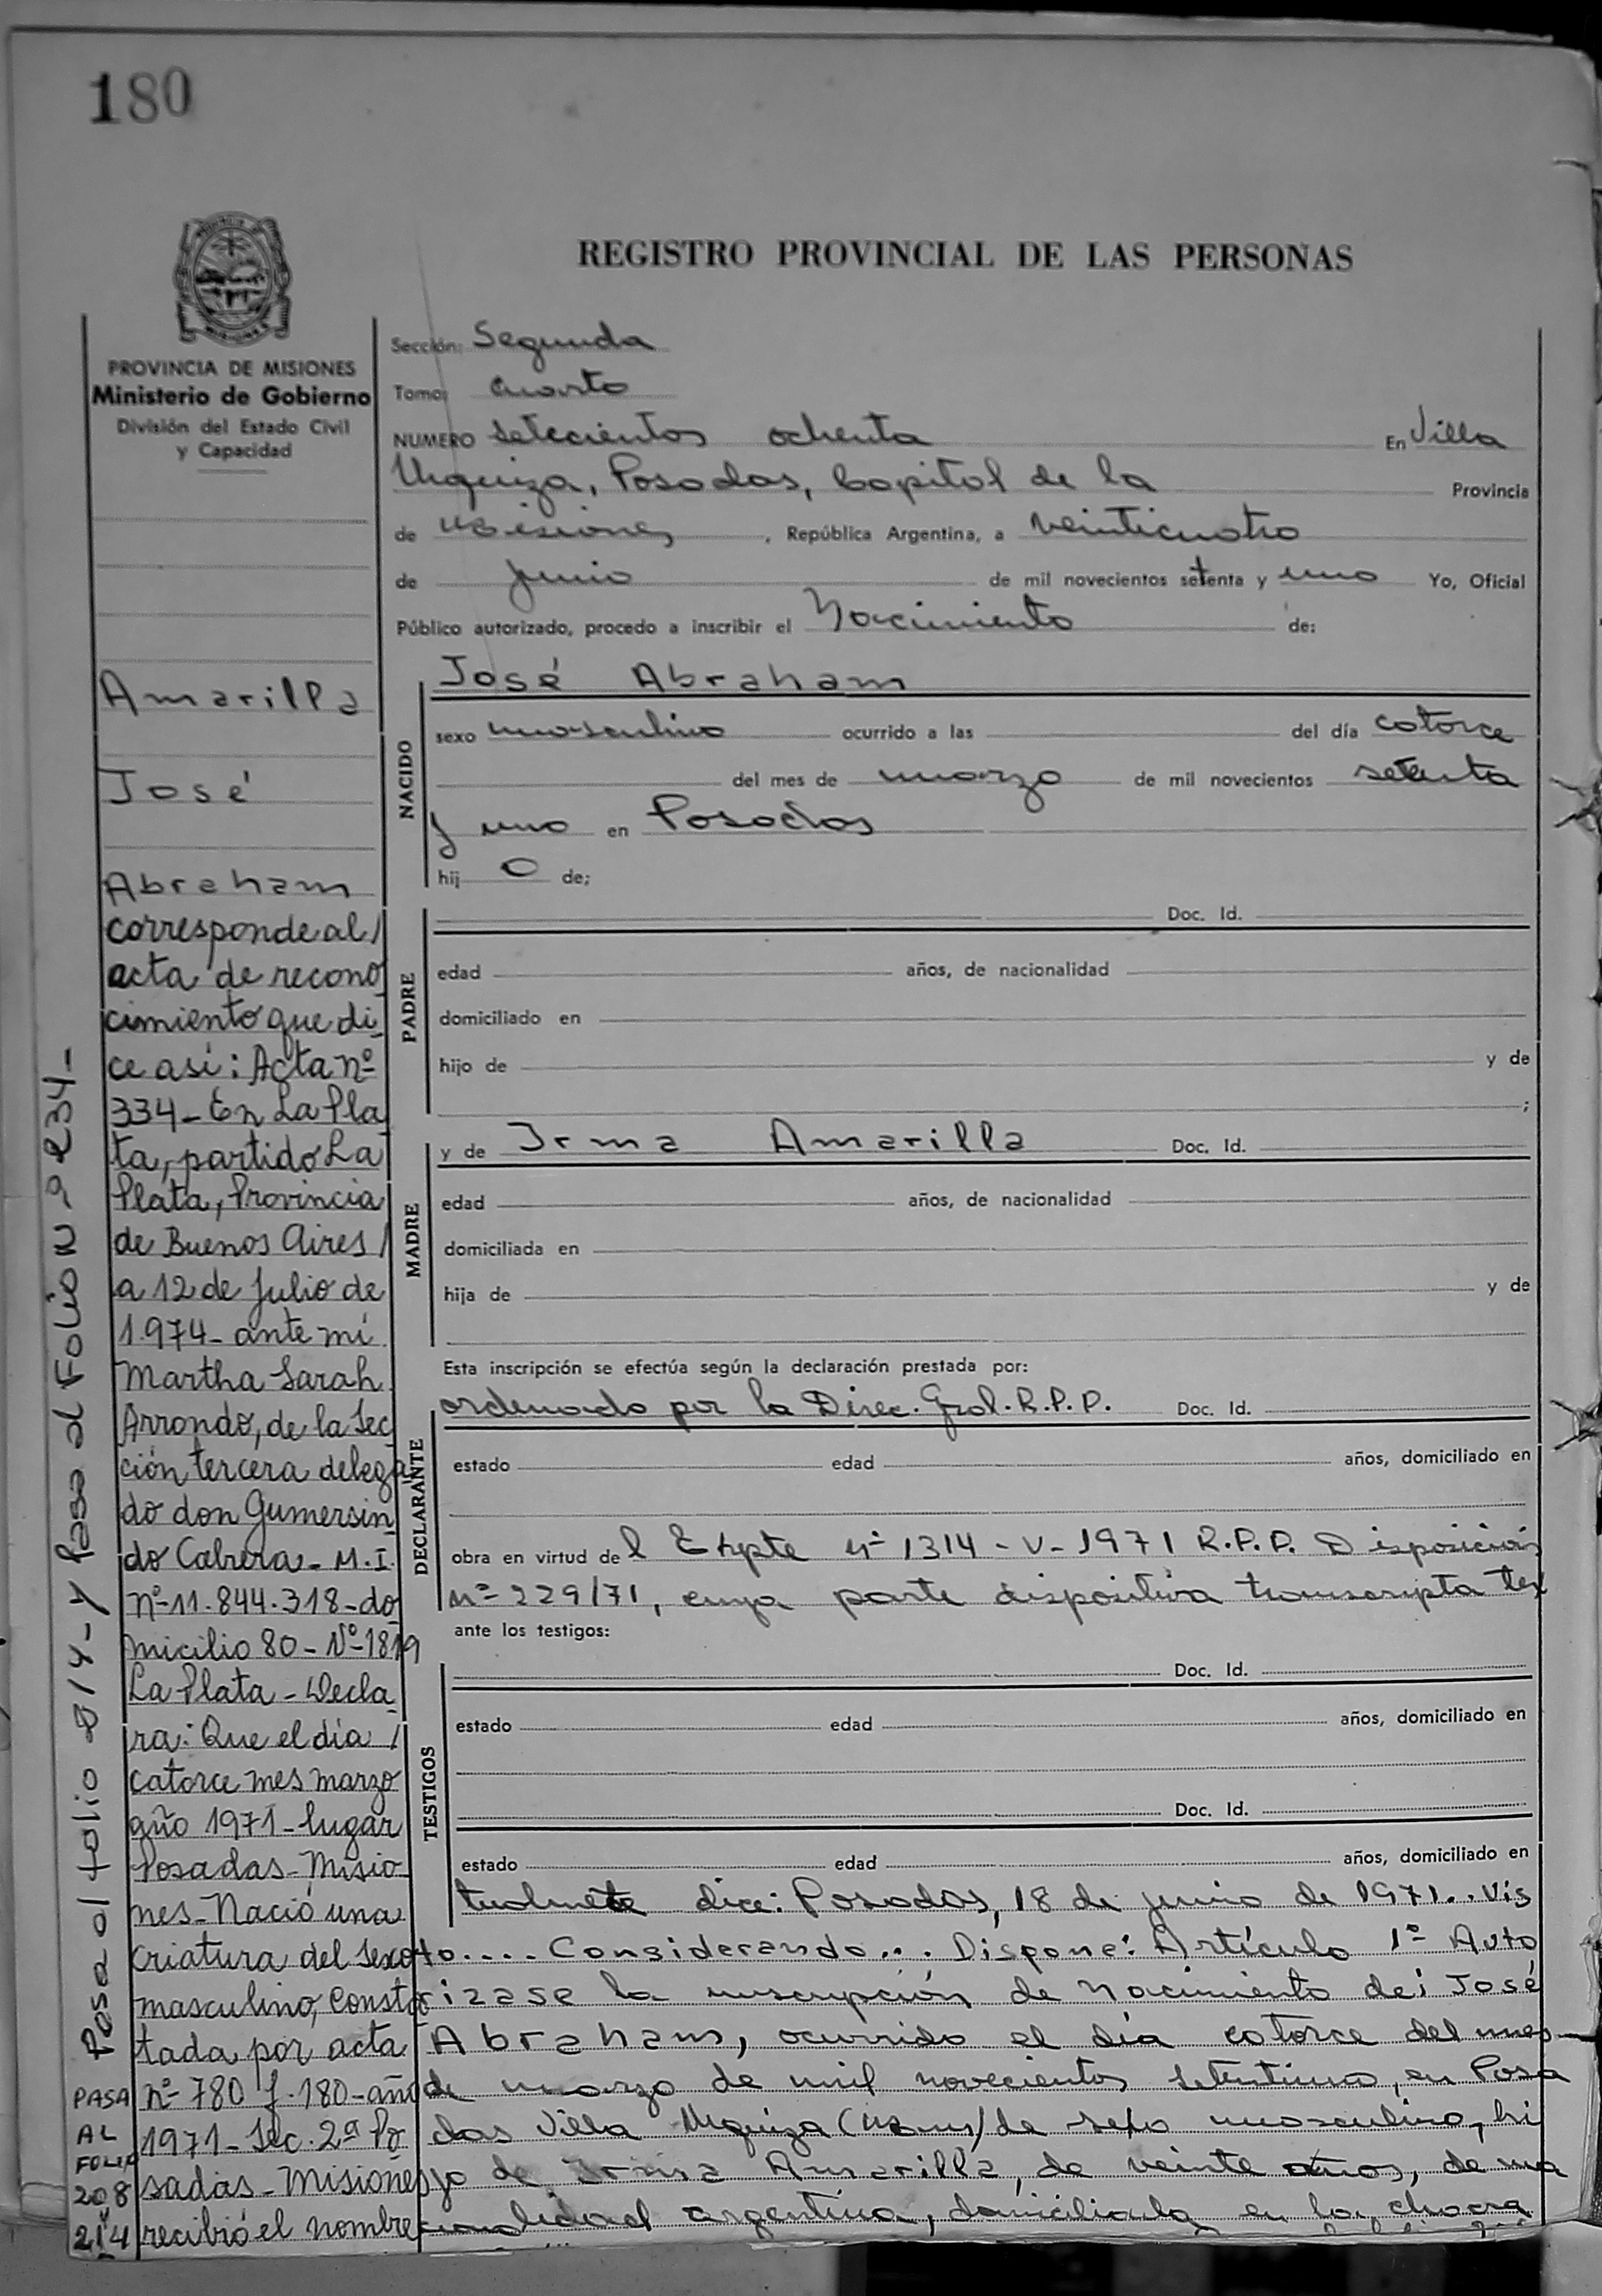 180
REGISTRO PROVINCIAL DE LAS PERSONAS
MISIONES
PROVINCIA DE MISIONES
Ministerio de Gobierno
División del Estado Civil
y Capacidad
Amarilla
José
Abraham
corresponde al /
acta de recono
cimiento que di_
ce así: Acta nº
334_ En La Pla
ta, partido La
Plata, Provincia
de Buenos Aires /
a 12 de Julio de
1.974_ ante mi
Martha Sarah
Arrondo, de la Sec
ción tercera delega
do don Gumersin_
do Cabrera_ M.I.
nº 11.844.318_do_
micilio 80_ Nº 1819
La Plata_ Decla_
ra: Que el día /
catorce mes marzo
año 1971_ lugar
Posadas_ Misio_
nes_ Nació una
criatura del sexo
masculino, consta
tada por acta
nº 780 f. 180_año
1971_ Sec. 2ª Po_
sadas_ Misiones
recibió el nombre
Pasa al folio 214-y Pasa al Folio Nº 234-
PASA
AL
FOLIO
208
y
214
Sección: Segunda
Tomo: cuarto
NUMERO setecientos ochenta En Villa
Urquiza, Posadas, Capital de la Provincia
de Misiones, República Argentina, a veinticuatro
de junio de mil novecientos setenta y uno Yo, Oficial
Público autorizado, procedo a inscribir el Nacimiento de:
José Abraham
NACIDO
sexo masculino ocurrido a las del día catorce
del mes de marzo de mil novecientos setenta
y uno en Posadas
hij o de;
PADRE
Doc. Id.
edad años, de nacionalidad
domiciliado en
hijo de y de
;
MADRE
y de Irma Amarilla Doc. Id.
edad años, de nacionalidad
domiciliada en
hija de y de
Esta inscripción se efectúa según la declaración prestada por:
DECLARANTE
ordenado por la Direc. Gral. R.P.P. Doc. Id.
estado edad años, domiciliado en
obra en virtud de l Expte nº 1314 - V - 1971 R.P.P. Disposición
nº 229/71, cuya parte dispositiva transcripta tex
ante los testigos:
TESTIGOS
Doc. Id.
estado edad años, domiciliado en
Doc. Id.
estado edad años, domiciliado en
tualmete dice: Posadas, 18 de junio de 1971.. Vis
to.... Considerando... Dispone: Artículo 1º Auto
rizase la inscripción de nacimiento de: José
Abraham, ocurrido el día catorce del mes
de marzo de mil novecientos setentiuno, en Posa
das Villa Urquiza (Mnes) de sexo masculino, hi
jo de Irma Amarilla, de veinte años, de na
cionalidad argentina, domiciliada en la chacra